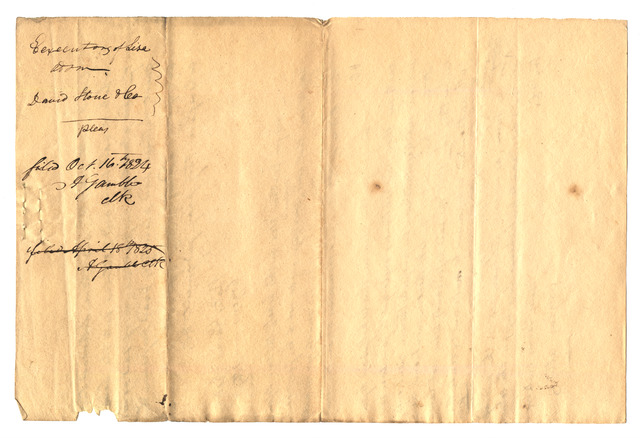 Executors of Lisa
adsm
David Stone & Co
pleas
filed Oct. 16th 1824
A Gamble
clk
filed April 18th 1825
A Gamble clk